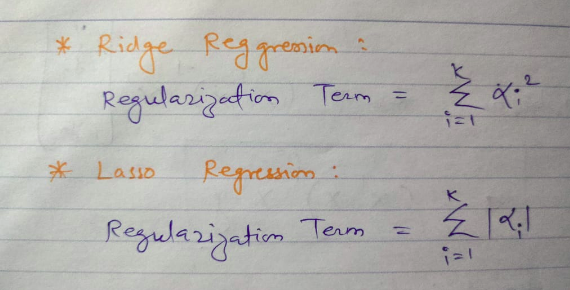 * Ridge Reggression :
Regularization Term = K Σ i=1 αi²
* Lasso Regression :
Regularization Term = K Σ i=1 |αi|